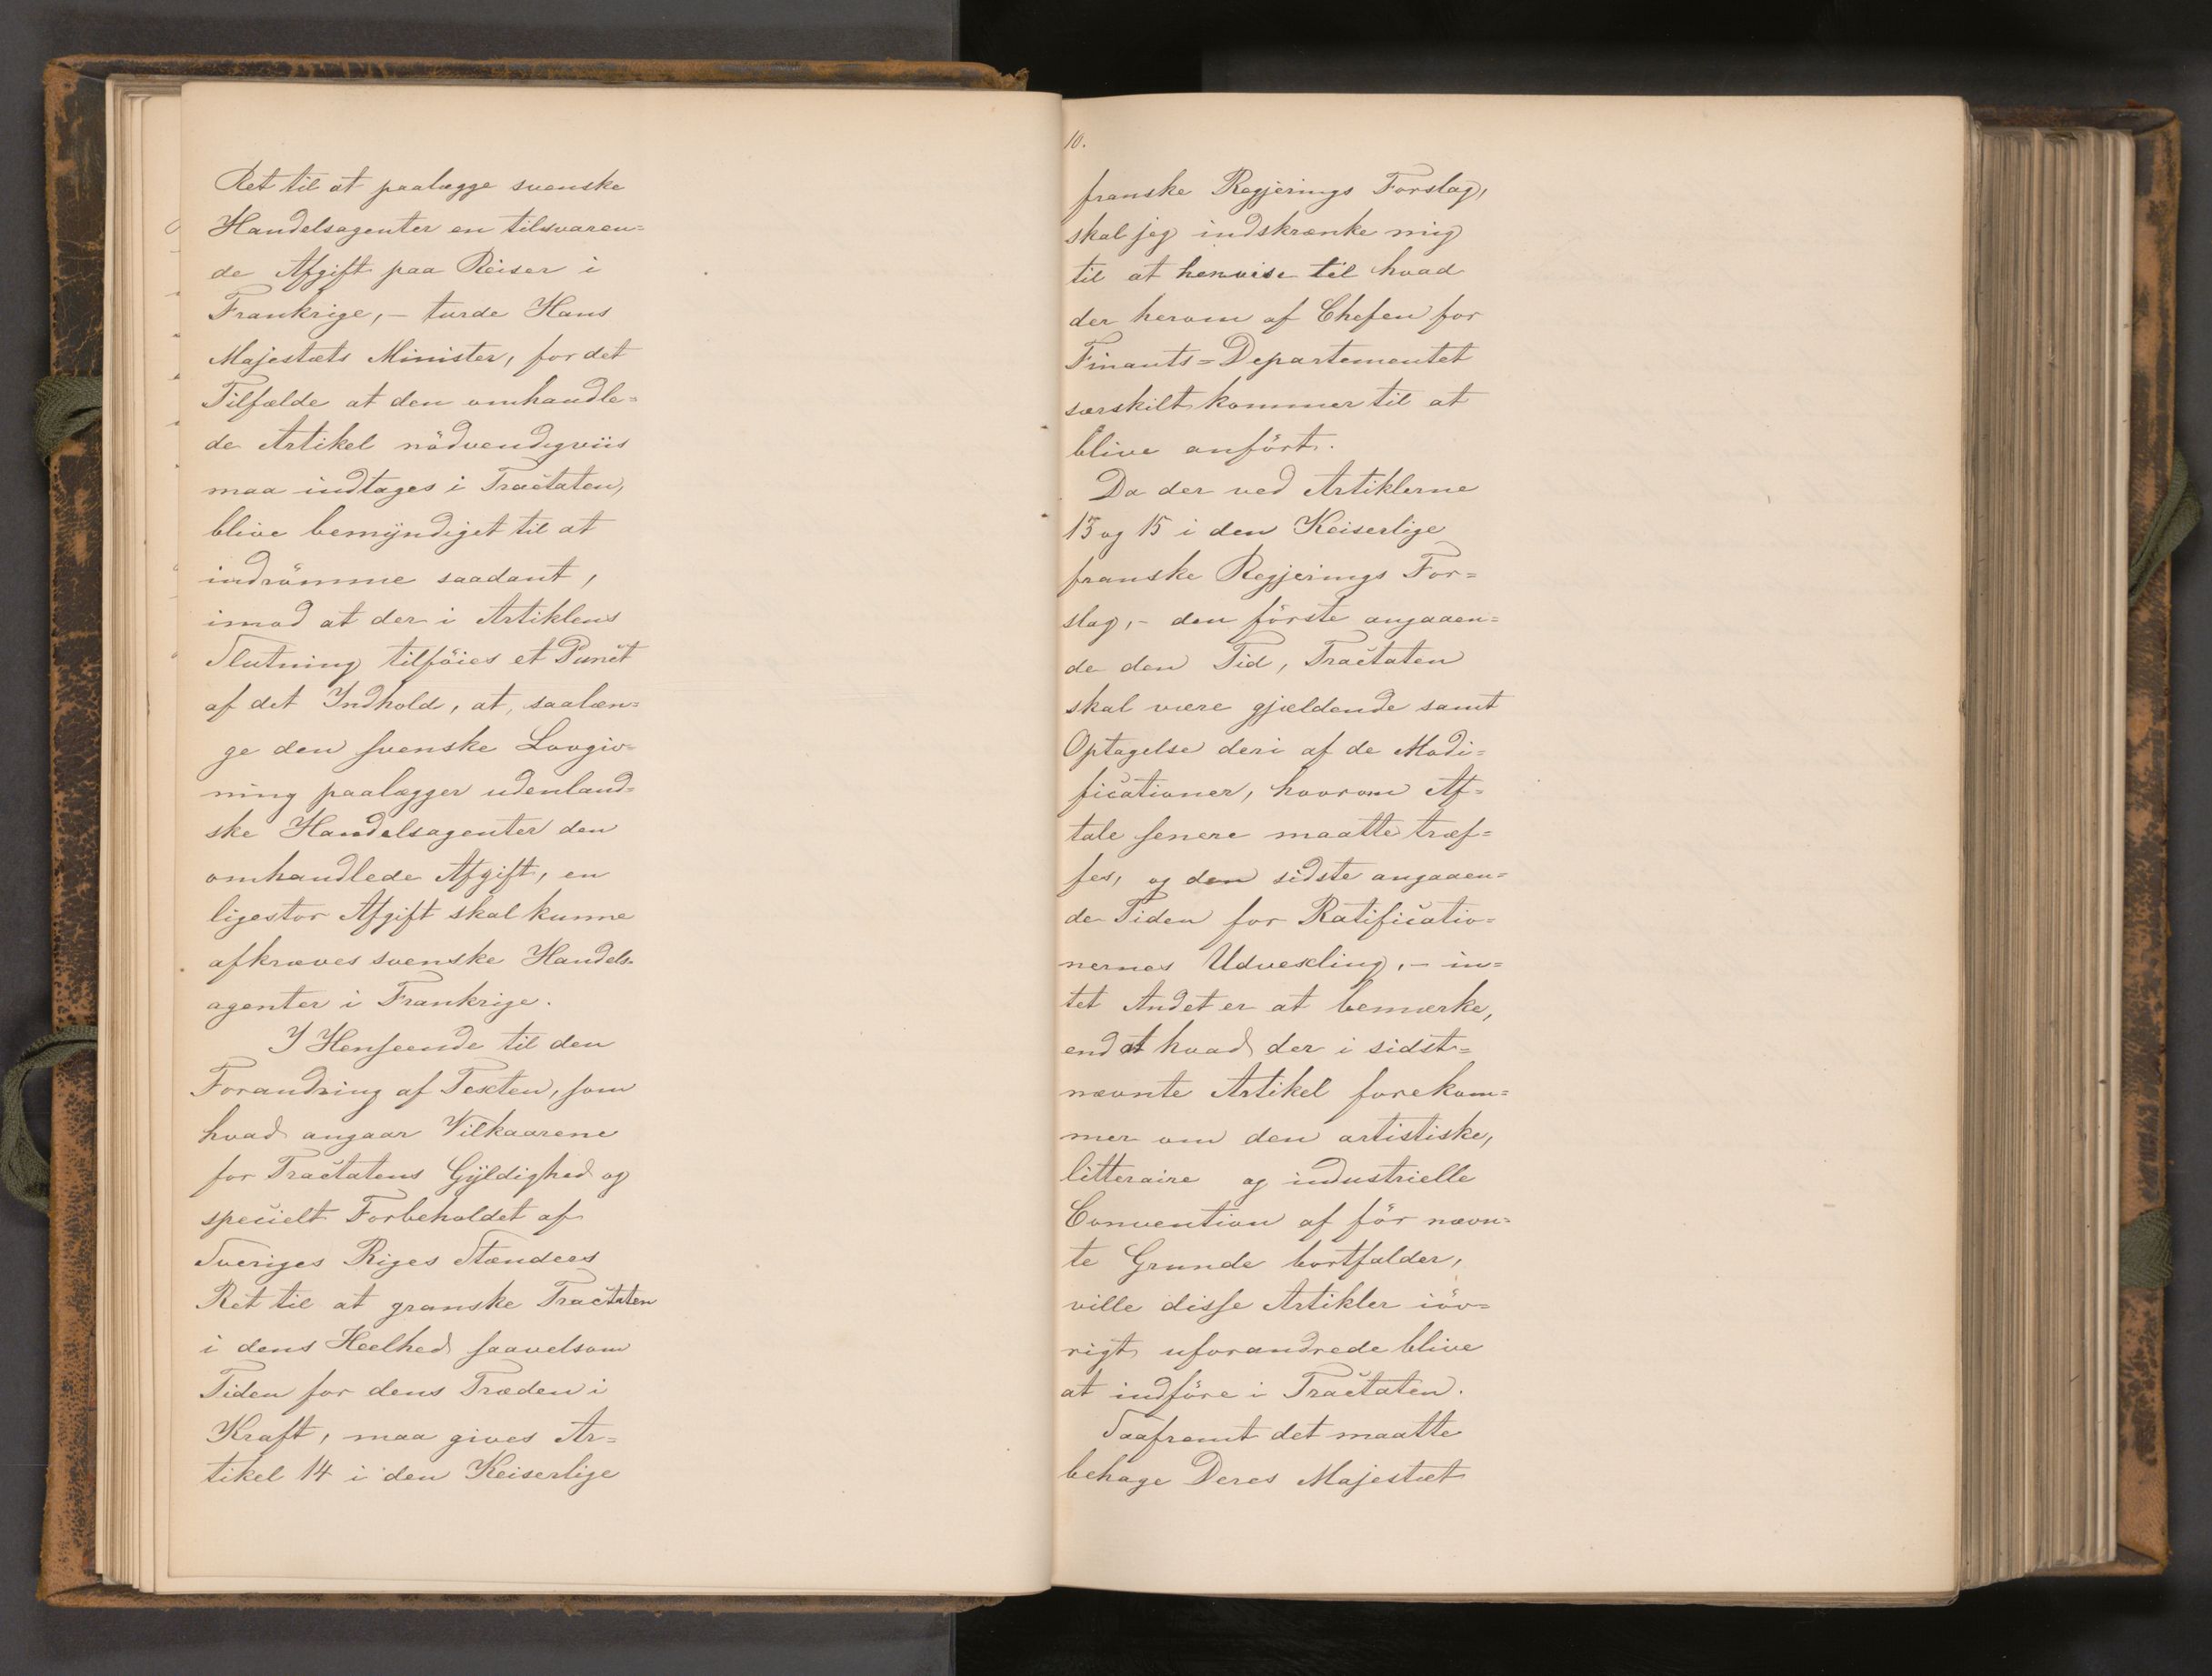 Ret til at paalægge svenske
Handelsagenter en tilsvaren=
de Afgift paa Reiser i
Frankrige, – turde Hans
Majestæts Minister, for det
Tilfælde at den omhandle=
de Artikel nödvendigviis
maa indtages i Tractaten,
blive bemÿndiget til at
indrömme saadant,
imod at der i Artiklens
Slutning tilföies et Punct
af det Indhold, at, saalæn=
ge den svenske Lovgiv=
ning paalægger udenland=
ske Handelsagenter den
omhandlede Afgift, en
ligestor Afgift skal kunne
afkræves svenske Handels-
agenter i Frankrige.
I Henseende til den
Forandring af Texten, som
hvad angaar Vilkaarene
for Tractatens Gÿldighed og
specielt Forbeholdet af
Sveriges Riges Stænders
Ret til at granske Tractaten
i dens Heelhed saavelsom
Tiden for dens Træden i
Kraft, maa gives Ar=
tikel 14 i den Keiserlige
10.
franske Regjerings Forslag,
skal jeg indskrænke mig
til at henvise til hvad
der herom af Chefen for
Finants=Departementet
særskilt kommer til at
blive anfört.
Da der ved Artiklerne
13 og 15 i den Keiserlige
franske Regjerings For=
slag, – den förste angaaen=
de den Tid, Tractaten
skal være gjældende samt
Optagelse deri af de Modi=
ficationer, hvorom Af=
tale senere maatte træf=
fes, og den sidste angaaen=
de Tiden for Ratificatio=
nernes Udvexling, – in=
tet Andet er at bemærke,
end at hvad der i sidst=
nævnte Artikel forekom=
mer om den artistiske,
litteraire og industrielle
Convention af för nævn=
te Grunde bortfalder,
ville disse Artikler iöv=
rigt uforandrede blive
at indföre i Tractaten.
Saafremt det maatte
behage Deres Majestæt